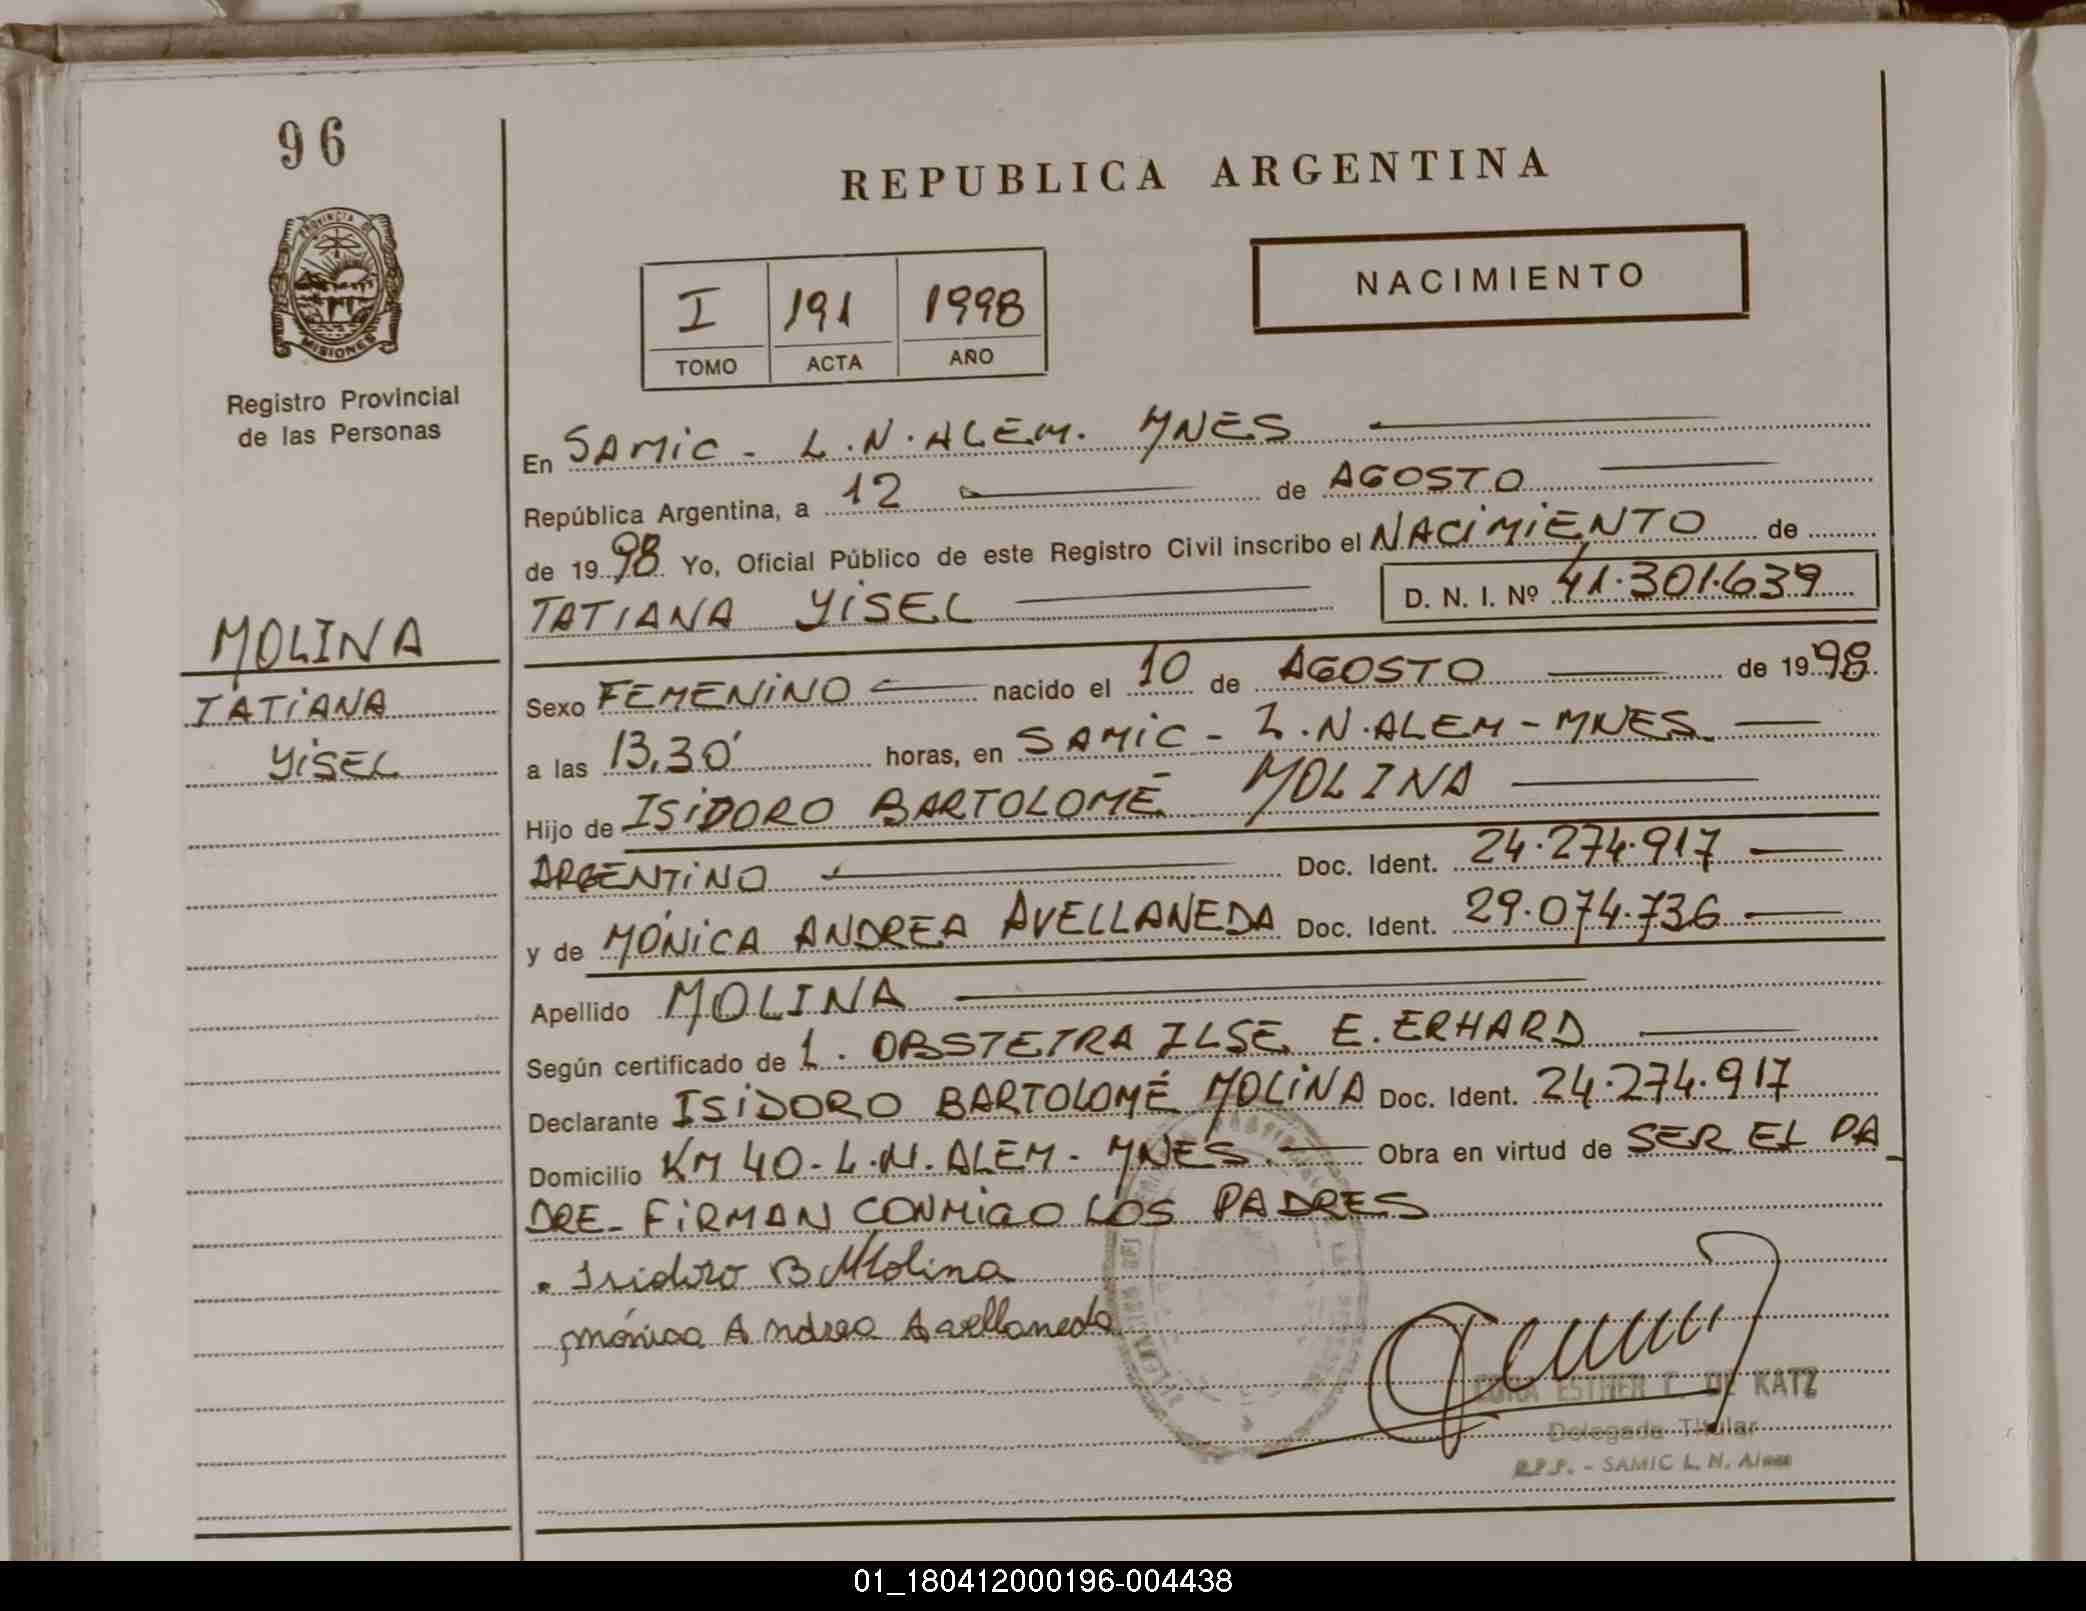 96
REPUBLICA ARGENTINA
PROVINCIA DE
MISIONES
I 191 1998
TOMO ACTA AÑO
NACIMIENTO
Registro Provincial
de las Personas
En SAMIC - L.N.ALEM. MNES
República Argentina, a 12 de AGOSTO
de 1998 Yo, Oficial Público de este Registro Civil inscribo el NACIMIENTO de
TATIANA YISEL D. N. I. Nº 41.301.639
MOLINA
TATIANA
YISEL
Sexo FEMENINO nacido el 10 de AGOSTO de 1998
a las 13,30' horas, en SAMIC - L.N.ALEM - MNES.
Hijo de ISIDORO BARTOLOMÉ MOLINA
ARGENTINO Doc. Ident. 24.274.917
y de MÓNICA ANDREA AVELLANEDA Doc. Ident. 29.074.736
Apellido MOLINA
Según certificado de L. OBSTETRA ILSE E. ERHARD
Declarante ISIDORO BARTOLOMÉ MOLINA Doc. Ident. 24.274.917
Domicilio KM 40 - L.N. ALEM - MNES. Obra en virtud de SER EL PA
DRE - FIRMAN CONMIGO LOS PADRES
Isidoro B Molina
Mónica Andrea Avellaneda
ESTHER DE KATZ
Delegada Titular
R.P.P. - SAMIC L. N. Alem
01_180412000196-004438